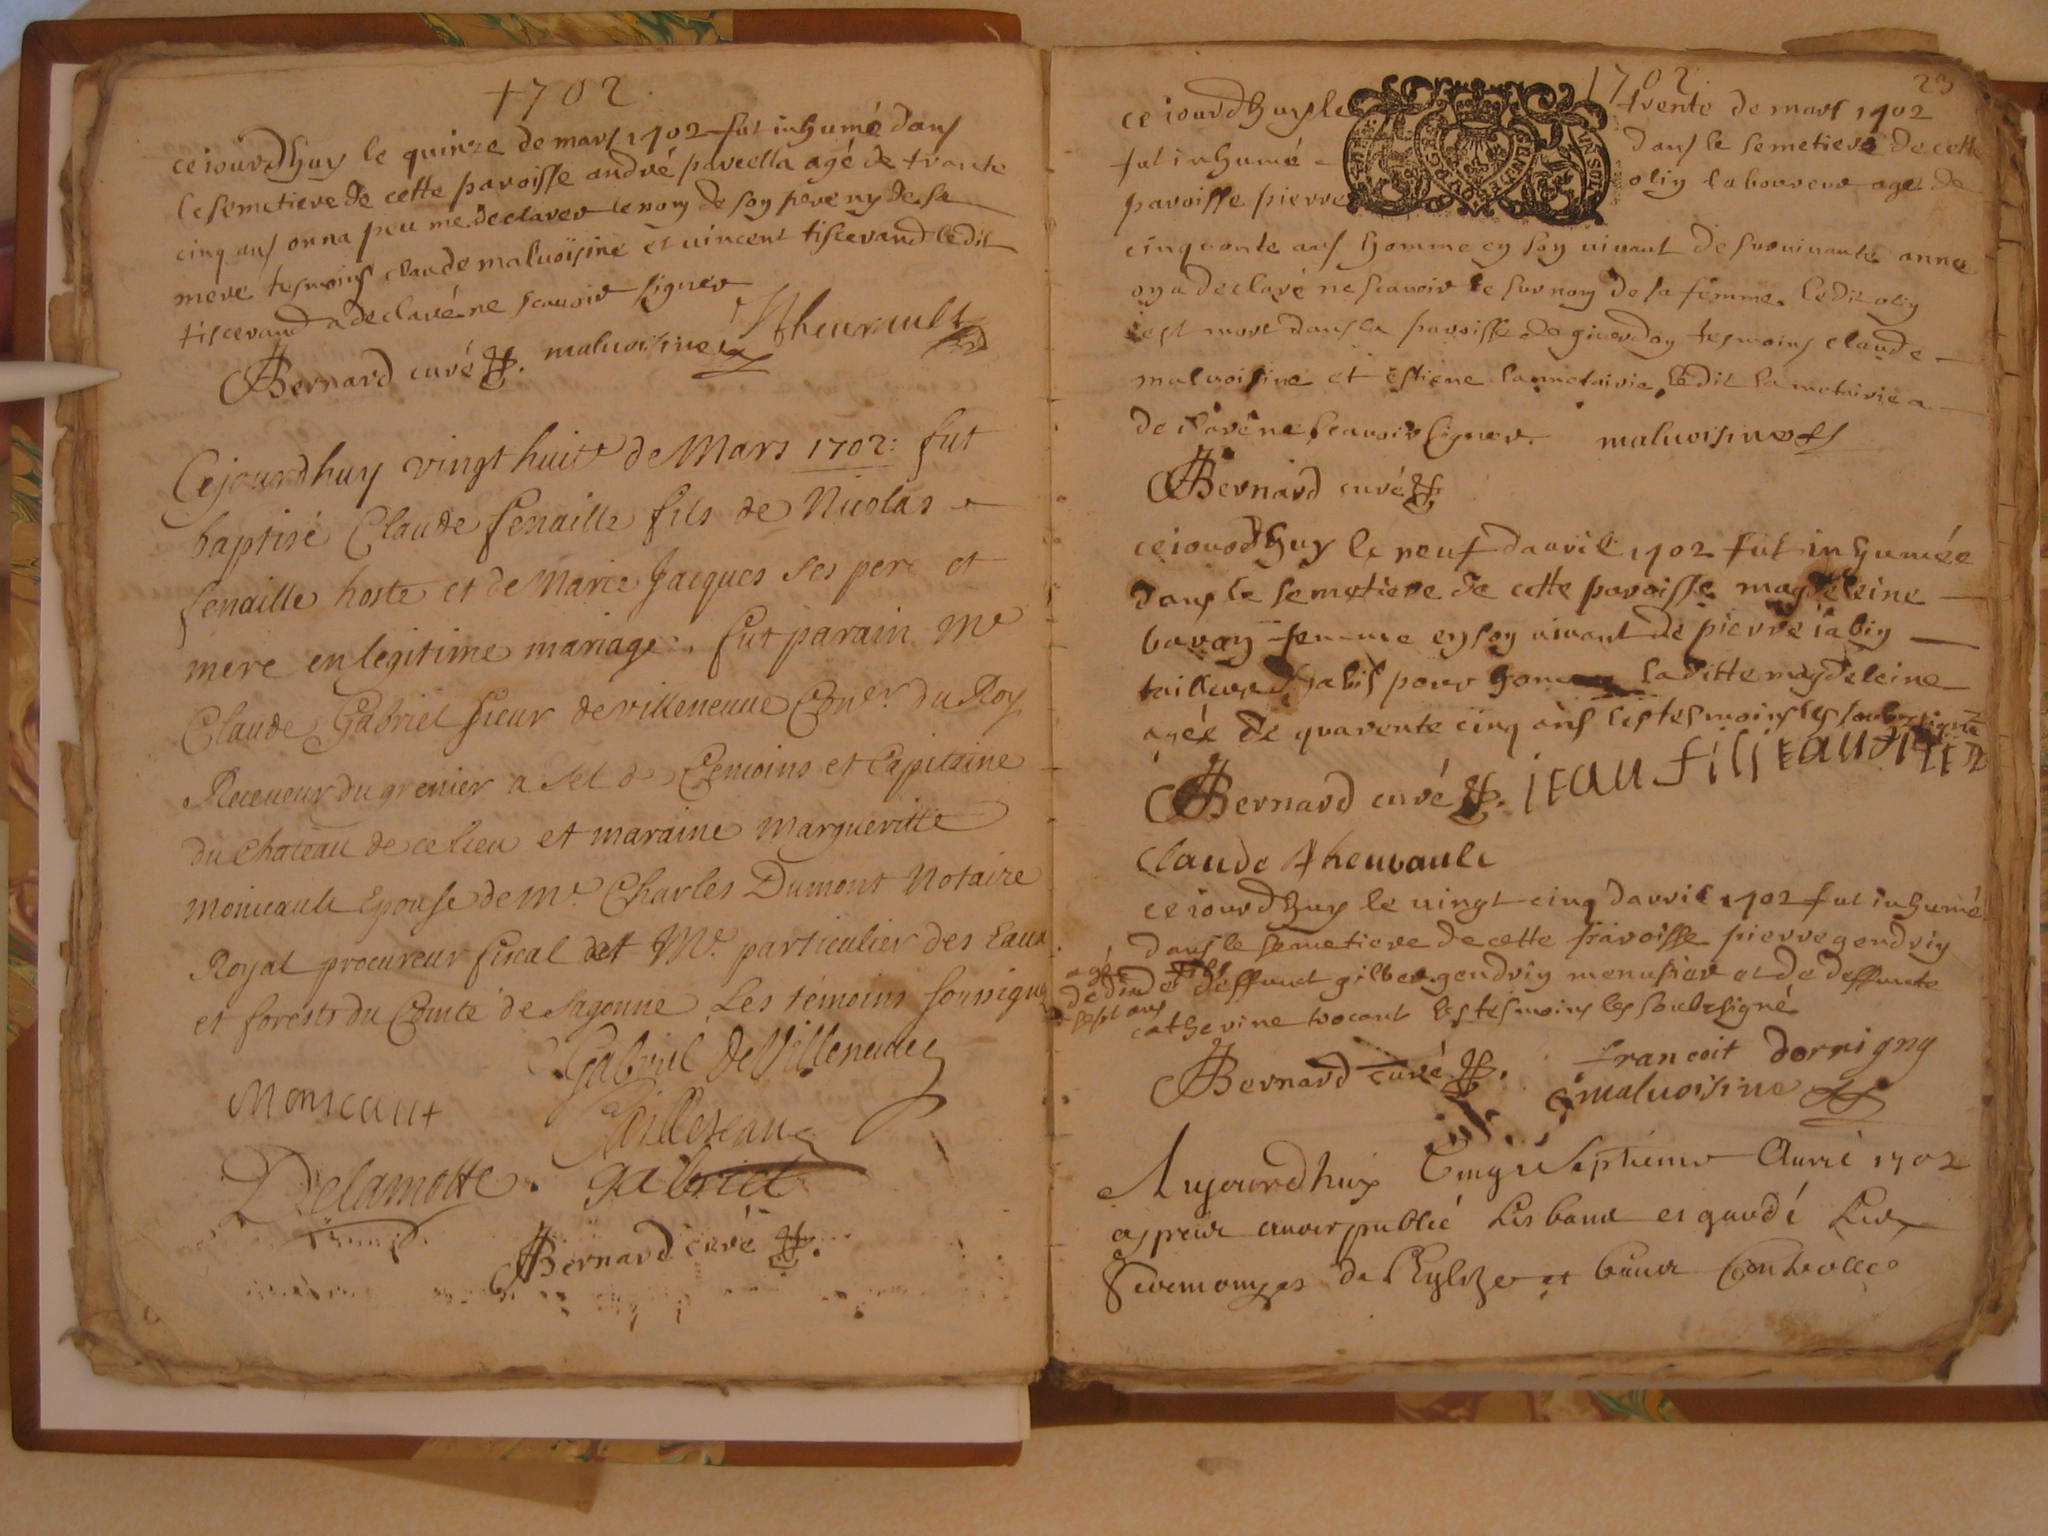 1702.
ce iourdhuy le quinze de mars 1702 fut inhumé dans
le semetiere de cette paroisse andré pareella agé de trante
cinq ans on na peu me declarer le nom de son pere ny de sa
mere tesmoins claude malvoisine et vincent tiscerand ledit
tiscerand a declaré ne scavoir signer
Bernard curé malvoisine Theurault
Cejourdhuy vingt huit de Mars 1702: fut
baptisé Claude fenaille fils de Nicolas
fenaille hoste et de Marie Jacques ses pere et
mere en legitime mariage: fut parain Me
Claude Gabriel sieur de villeneuve Coner du Roy
Receveur du grenier a sel de et Capitaine
du chateau de ce lieu et maraine Margueritte
Monicault Epouse de Me Charles Dumont Notaire
Royal procureur fiscal et Me particulier des Eaux
et forests du Comté de Sagonne Les témoins soussignes
Gabriel De Villeneuve
Monicault
Delamotte. gabriel
Bernard curé
1702. 23
ce iourdhuy le trente de mars 1702
fut inhumé dans le semetiere de cette
paroisse pierre oliy laboureur agé de
cinquante ans homme en son vivant de survivante anne
on a declaré ne scavoir le surnom de sa femme. ledit oliy
est mort dans la paroisse de giverdon tesmoins claude
malvoisine et estiene lametairie ledit lametairie a
declaré ne scavoir signer. malvoisine
Bernard curé
ce iourdhuy le neuf davril 1702 fut inhumée
dans le semetiere de cette paroisse magdeleine
baron femme en son vivant de pierre iabiy
tailleur dhabis pour laditte magdeleine
agée de quarente cinq ans les tesmoins les soubzsigné
Bernard curé. iEAU filiEAU
claude theurault
ce iourdhuy le vingt cinq davril 1702 fut inhumé
dans le semetiere de cette paroisse pierre gendriy
agé fils de deffunct gilber gendriy menusier et de deffuncte
de dix sept ans catherine trocant les tesmoins les soubzsigné
Bernard curé. francoit dorrigny
malvoisine
Aujourdhuy Vingt Septieme Avril 1702
apres avoir publié Les bans et gardé Les
Seremonyes de l'Eglize et